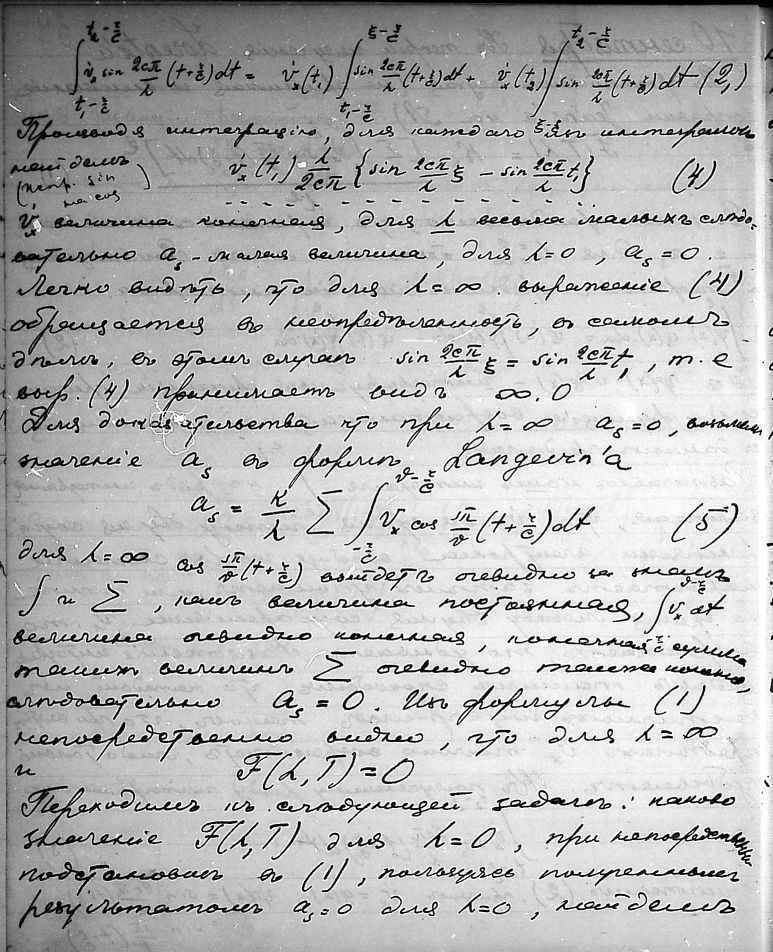 ∫_{t₁-r/c}^{t₂-r/c} v̇ₓ sin 2cπ/λ (t+r/c) dt = v̇ₓ(t₁) ∫_{t₁-r/c}^{ξ-r/c} sin 2cπ/λ (t+r/c) dt + v̇ₓ(t₂) ∫_{ξ-r/c}^{t₂-r/c} sin 2cπ/λ (t+r/c) dt (2,)
Производя интеграцію, для каждаго изъ интеграловъ
найдемъ v̇ₓ(t₁) λ/2cπ {sin 2cπ/λ ξ - sin 2cπ/λ t₁} (4)
(непр. sin на cos)
v̇ₓ величина конечная, для λ весьма малыхъ слѣдо-
вательно aₛ - малая величина, для λ=0, aₛ=0.
Легко видѣть, что для λ=∞ выраженіе (4)
обращается въ неопредѣленность, въ самомъ
дѣлѣ, въ этомъ случаѣ sin 2cπ/λ ξ = sin 2cπ/λ t₁, т. е
выр. (4) принимаетъ видъ ∞.0
Для доказательства что при λ=∞ aₛ=0, возьмемъ
значеніе aₛ въ формѣ Langevin'a
aₛ = K/λ Σ ∫_{-r/c}^{ϑ-r/c} vₓ cos sπ/ϑ (t+r/c) dt (5)
для λ=∞ cos sπ/ϑ (t+r/c) выйдетъ очевидно за знакъ
∫ и Σ, какъ величина постоянная, ∫_{-r/c}^{ϑ-r/c} vₓ dt
величина очевидно конечная, конечная сумма
такихъ величинъ Σ очевидно также конечна,
слѣдовательно aₛ = 0. Изъ формулы (1)
непосредственно видно, что для λ=∞
и F(λ,T)=0
Переходимъ къ слѣдующей задачѣ: каково
значеніе F(λ,T) для λ=0, при непосредственной
подстановкѣ въ (1), пользуясь полученнымъ
результатомъ aₛ=0 для λ=0, найдемъ